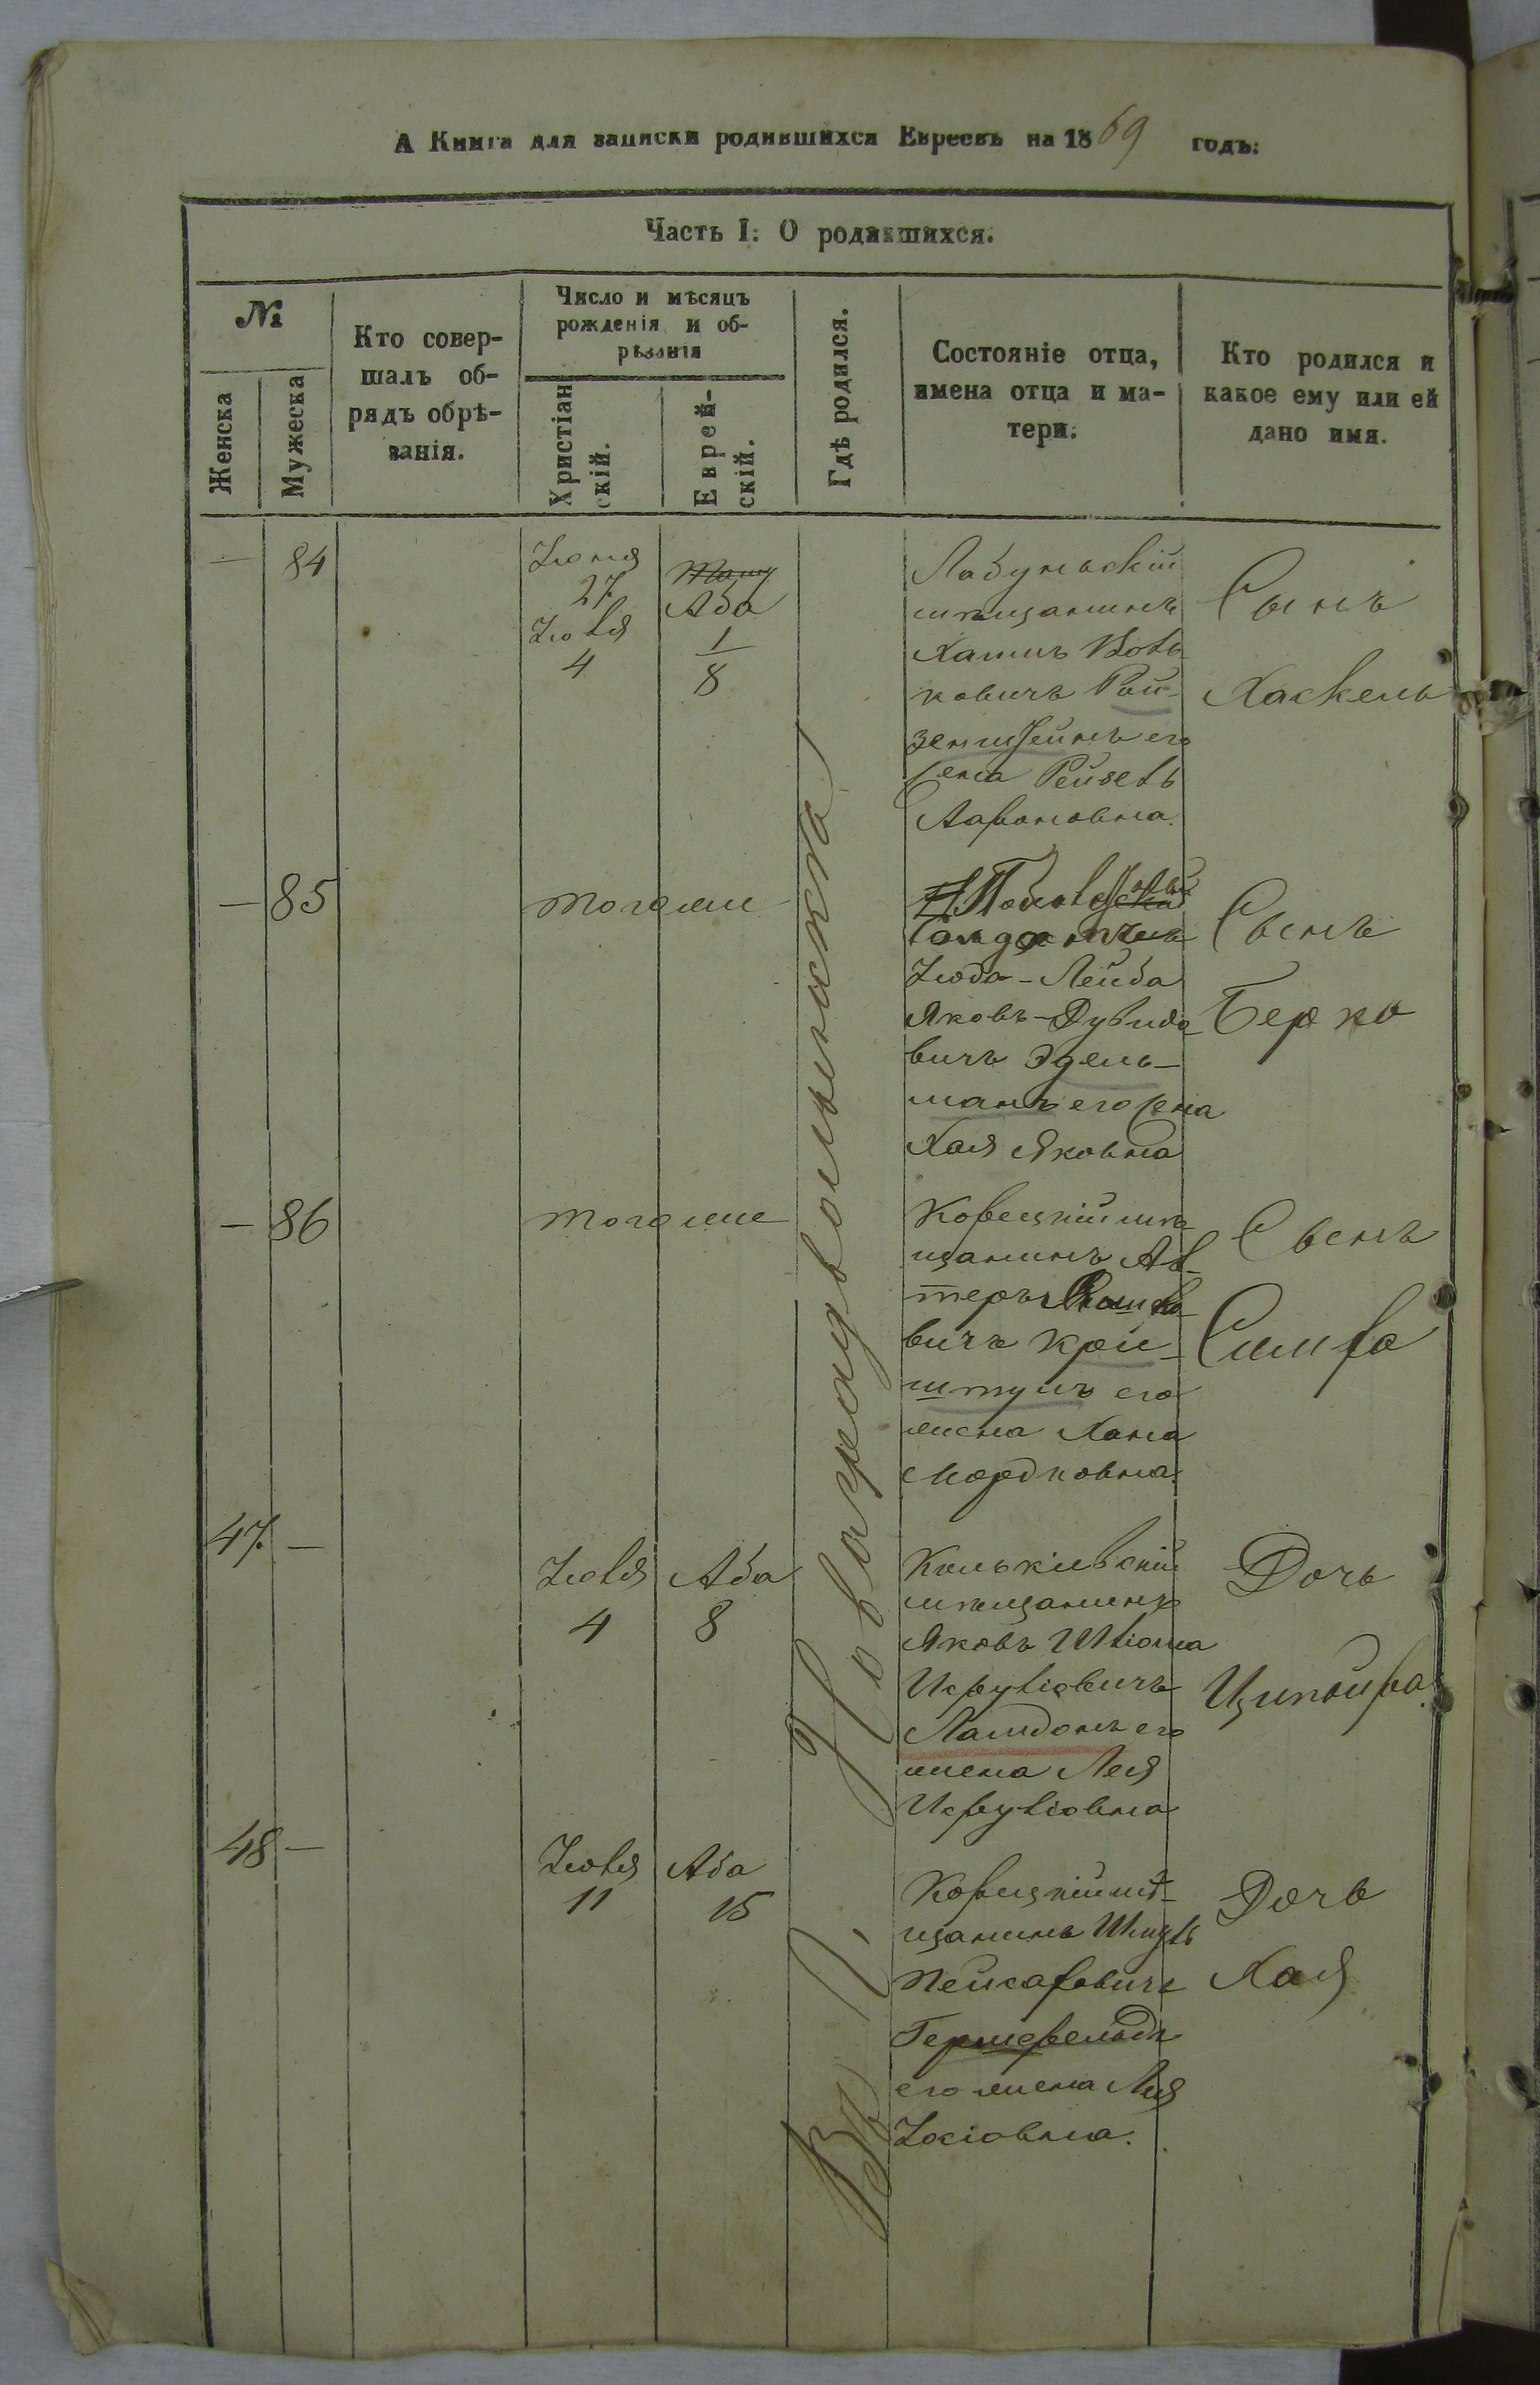 А Книга для записки родившихся Евреевъ на 1869 годъ:
Часть I: О родившихся.
№
Женска
Мужеска
Кто совер-
шалъ об-
рядъ обрѣ-
занія.
Число и мѣсяцъ
рожденія и об-
рѣзанія
Христіан
скій.
Еврей-
скій.
Гдѣ родился.
Состояніе отца,
имена отца и ма-
тери.
Кто родился и
какое ему или ей
дано имя.
Въ Г. Новградволынска
— 84
Іюня
27
Іюля
4
Аба
1
8
Лабунскій
мѣщанинъ
Хаимъ Вол
ковичъ Рой-
зенштейнъ его
жена Рейзель
Аароновна.
Сынъ
Хаскель
— 85
тогоже
Іюда-Лейба
Яковъ-Дувидо
вичъ Эдель-
манъ его жена
Хая Яковна
Сынъ
Берко
— 86
тогоже
Корецкій мѣ
щанинъ Ал-
теръ
вичъ Кри-
штулъ его
жена Хана
Мордковна.
Сынъ
Симха
47. —
Іюля
4
Аба
8
мѣщанинъ
Яковъ Шліома
Исруліовичъ
его
жена Лея
Исруліовна
Дочь
Ципойра
48 —
Іюля
11
Аба
15
Корецкій мѣ-
щанинъ Шмуль
Пейсаховичъ
Гершфельдъ
его жена Лея
Іосіовна.
Дочь
Хая